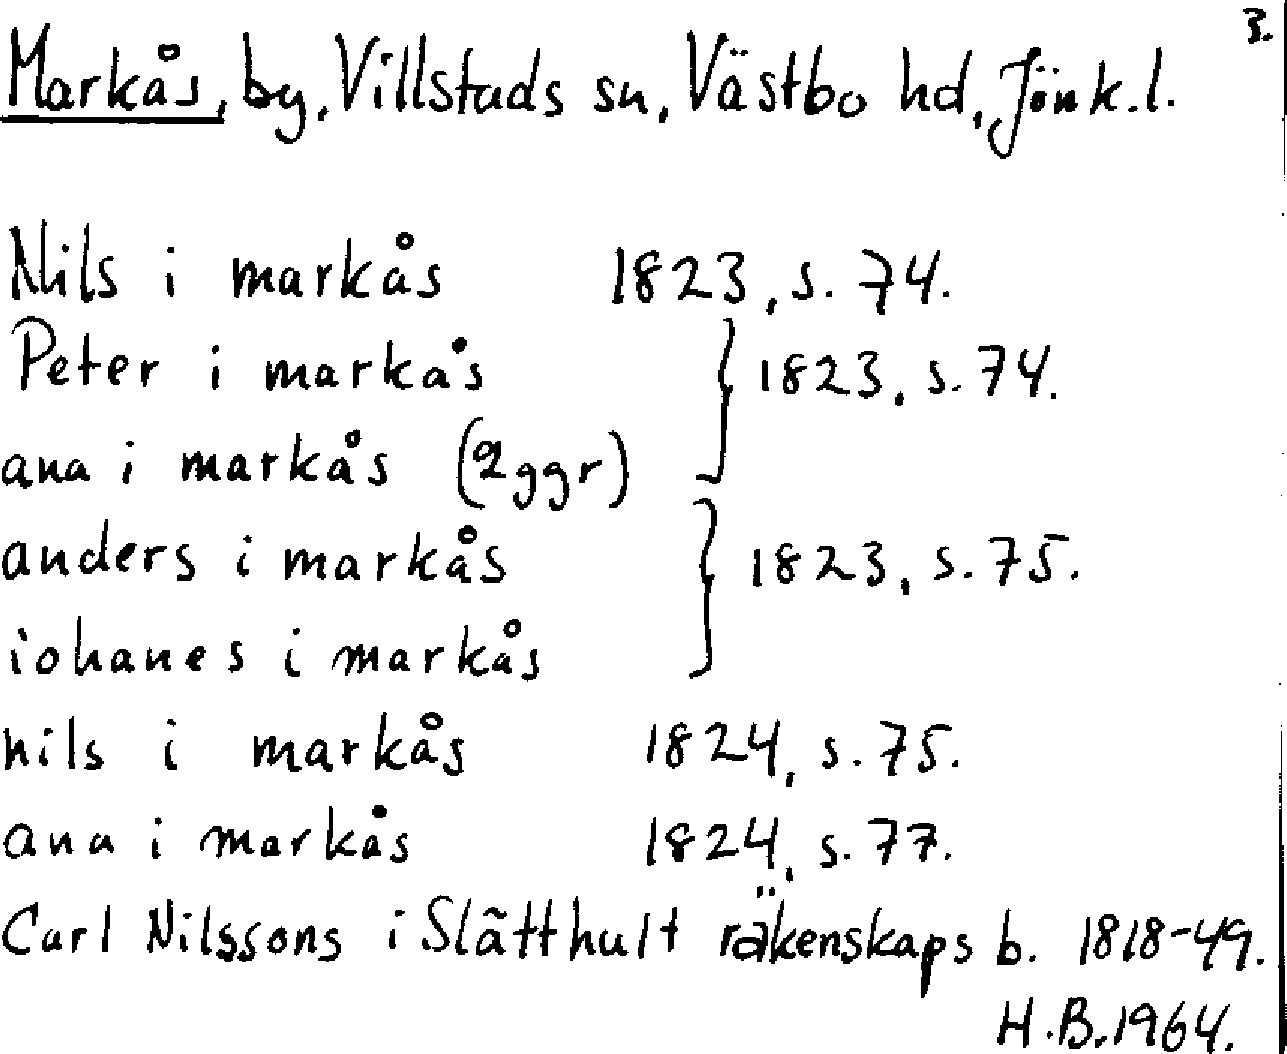 3.
Markås, by, Villstads sn, Västbo hd, Jönk.l.
Nils i markås 1823, s. 74.
Peter i markås } 1823, s. 74.
ana i markås (2ggr)
anders i markås } 1823, s. 75.
iohanes i markås
nils i markås 1824, s. 75.
ana i markås 1824, s. 77.
Carl Nilssons i Slätthult räkenskaps b. 1818-49.
H.B. 1964.